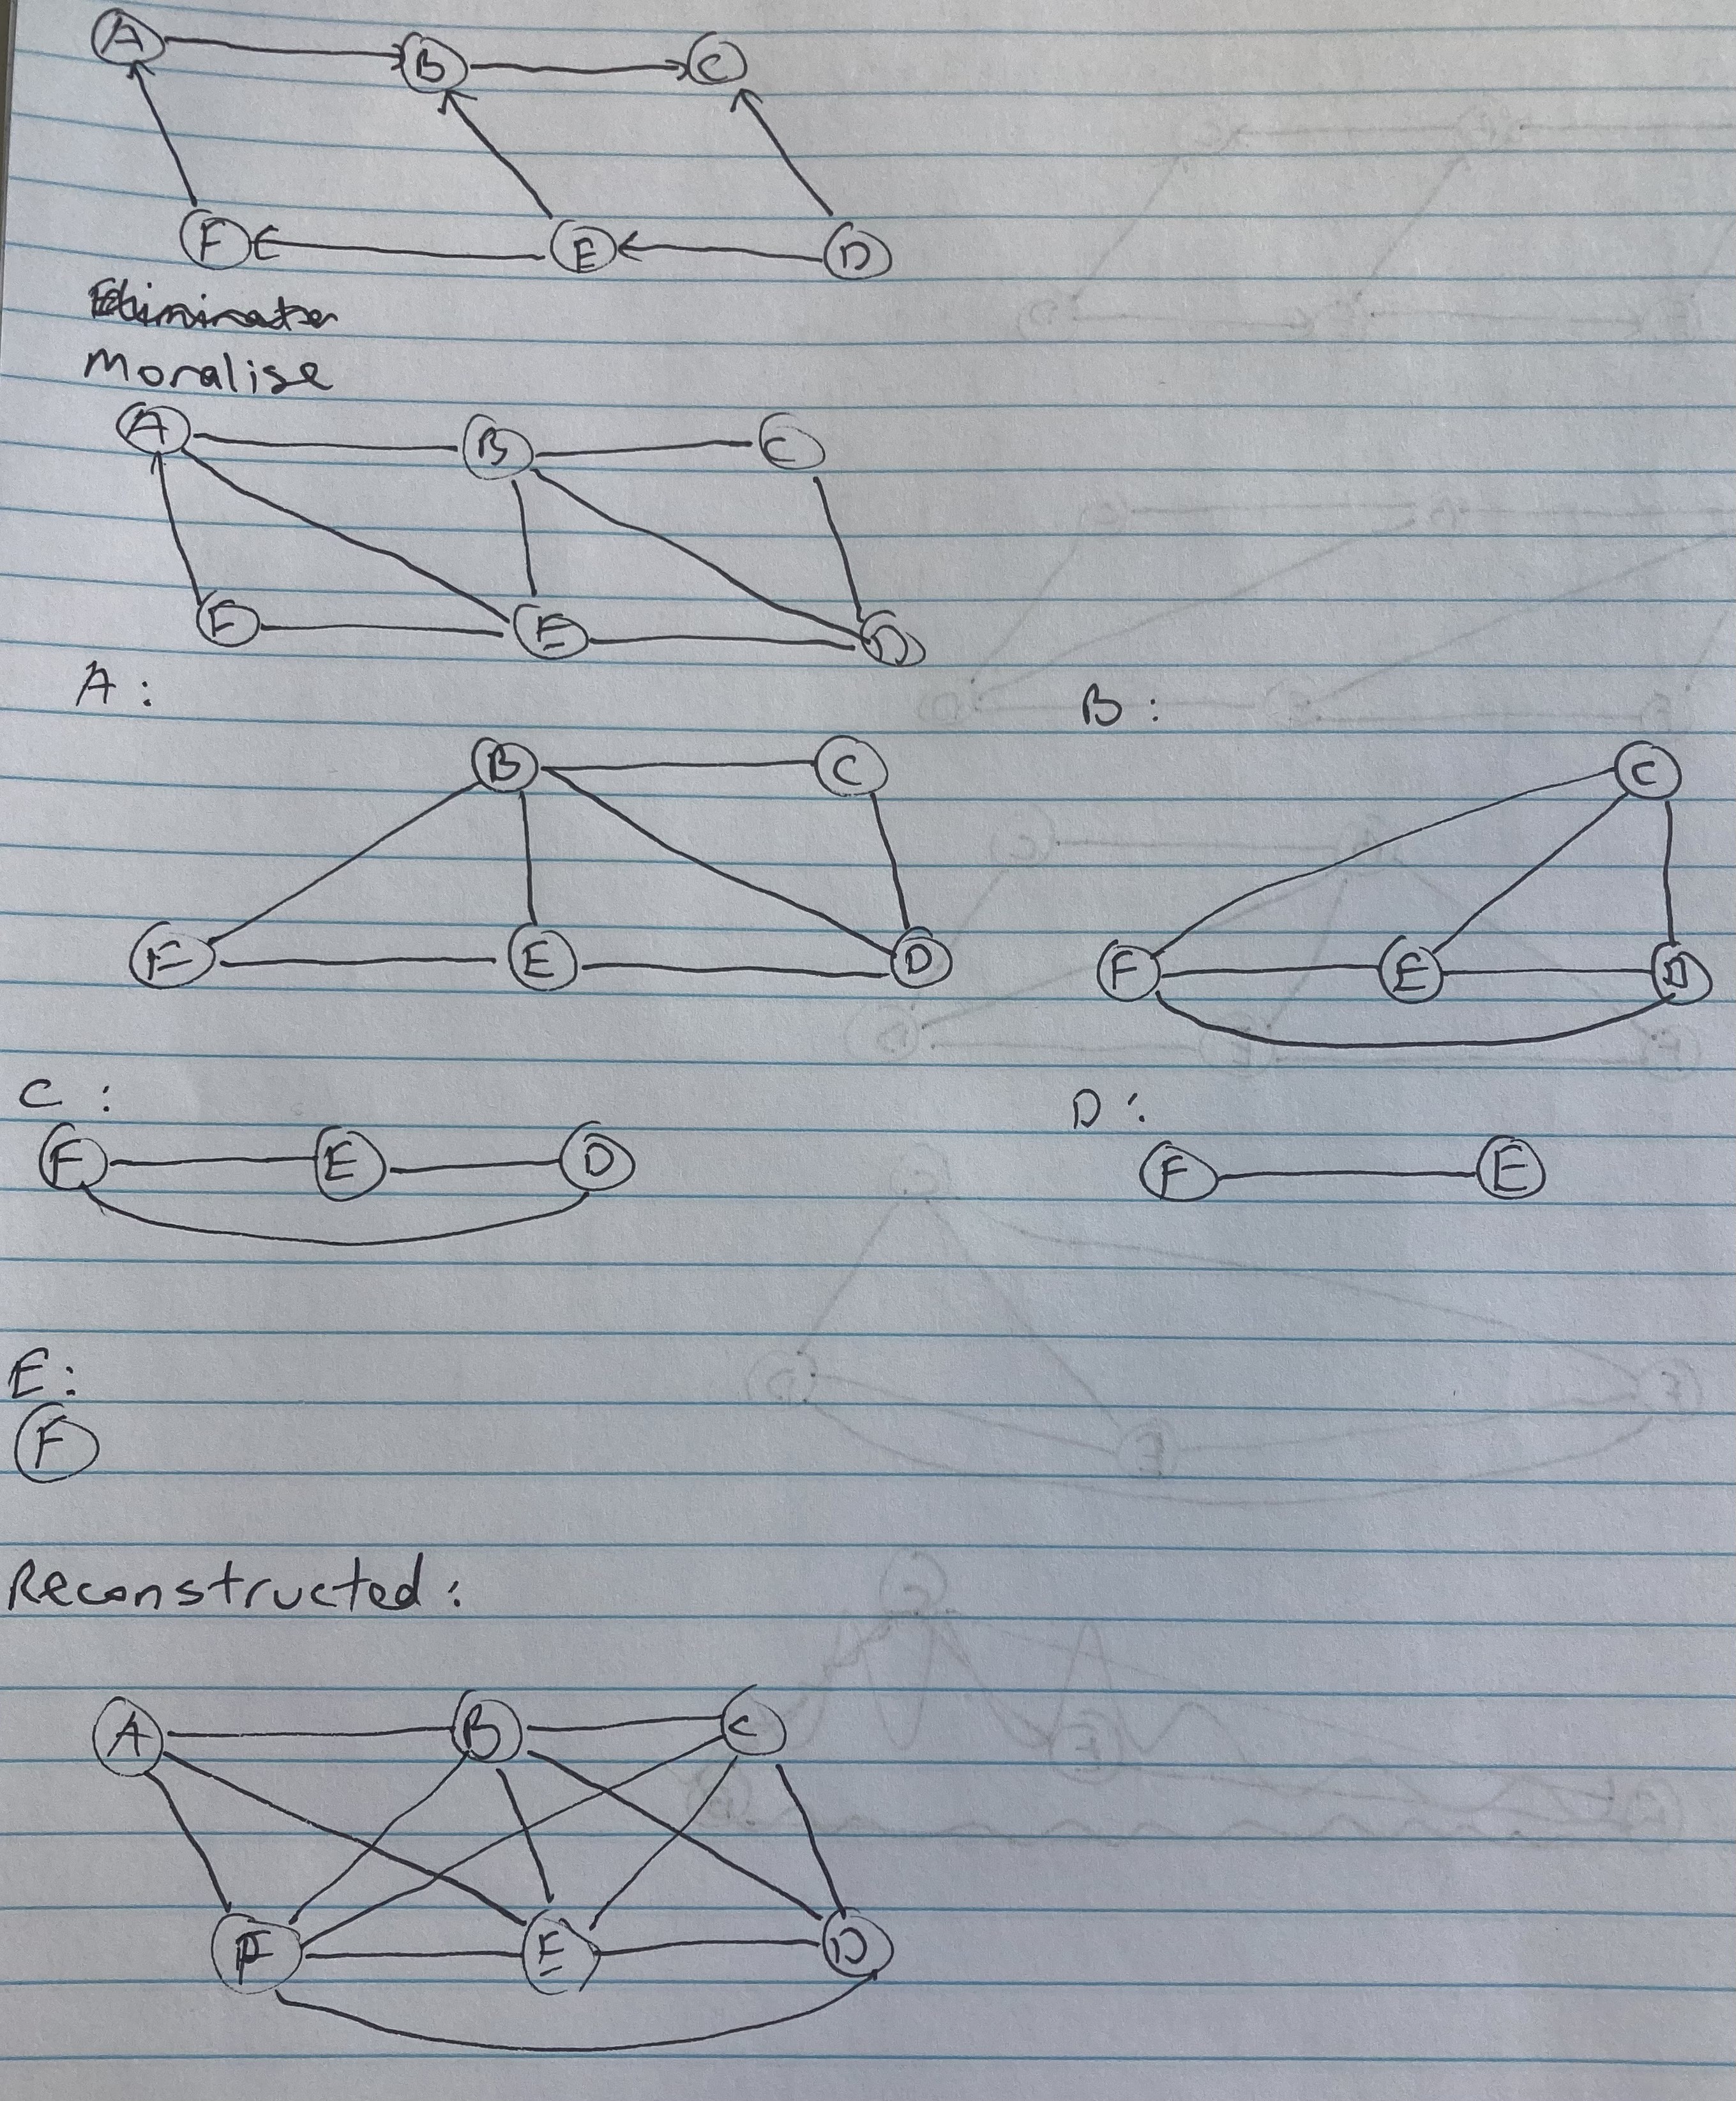 A B C
F E D
Eliminate
Moralise
A B C
F E D
A: B:
B C C
F E D F E D
C: D:
F E D F E
E:
F
Reconstructed:
A B C
F E D